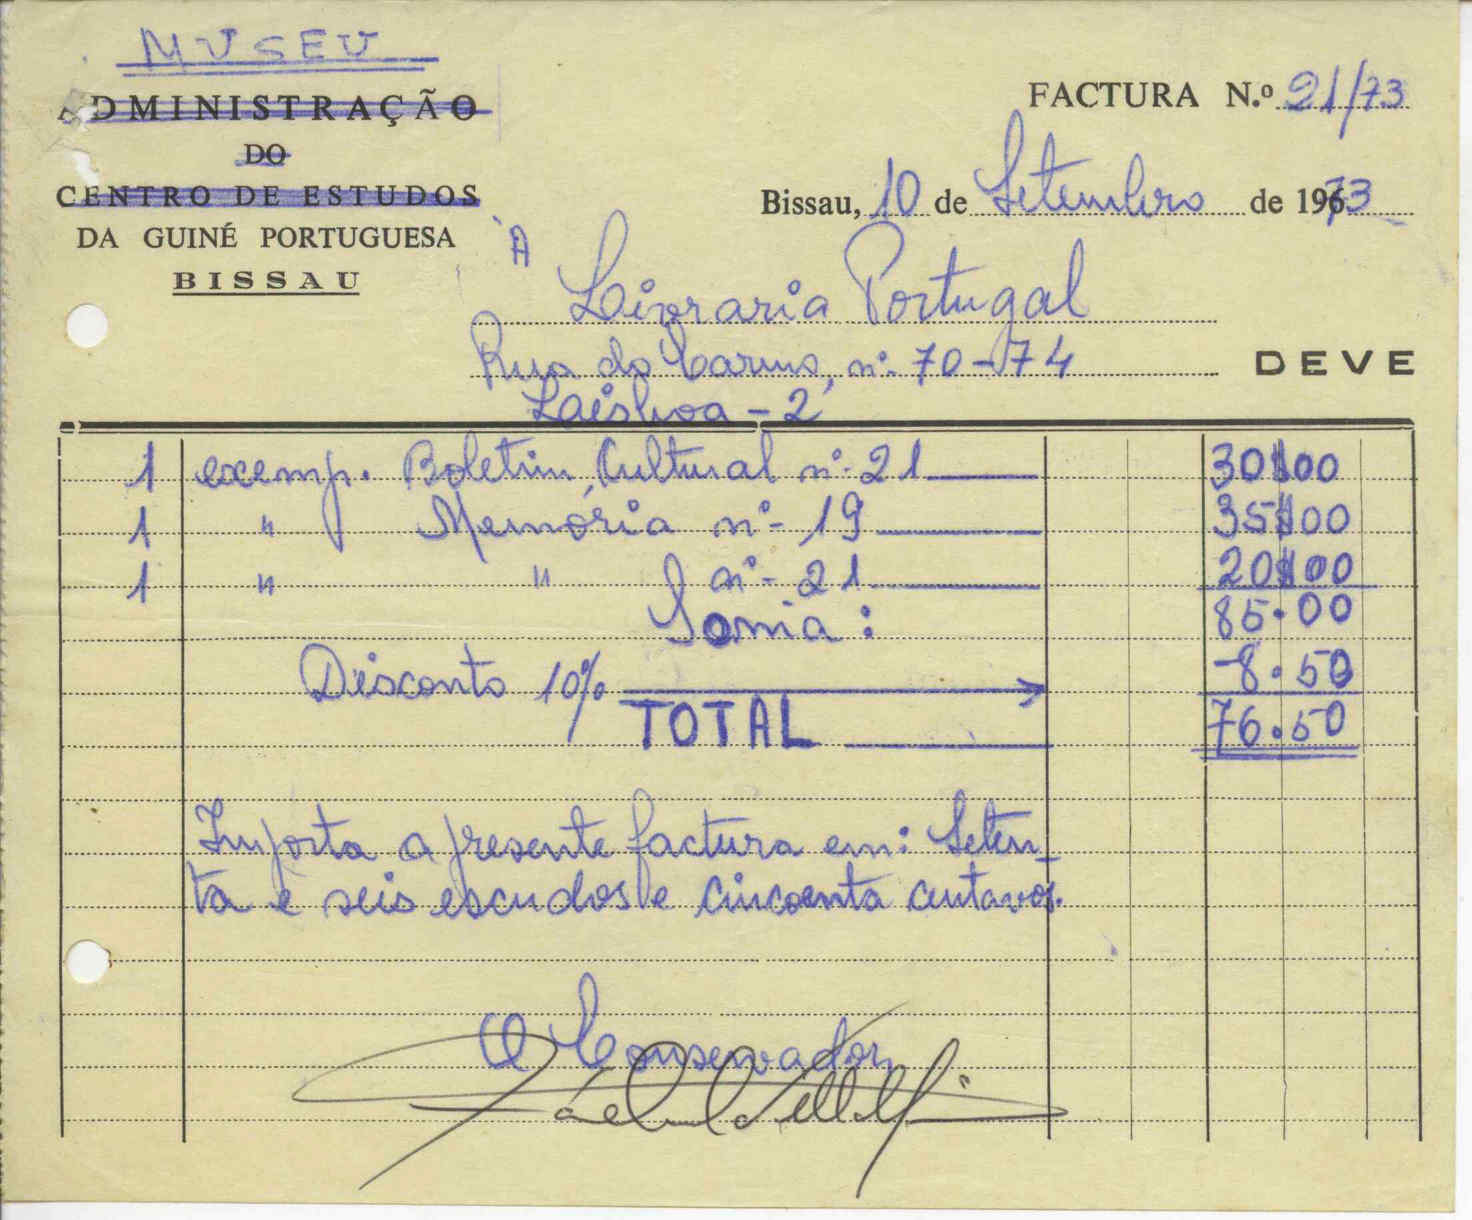 MUSEU
ADMINISTRAÇÃO
DO
CENTRO DE ESTUDOS
DA GUINÉ PORTUGUESA
BISSAU
FACTURA N.º 21/73
Bissau, 10 de Setembro de 19673
À
Livraria Portugal
Rua do Carmo, nº. 70-74
Laisboa - 2
DEVE
1 exemp. Boletim Cultural nº. 21 30$00
1 " Memória nº- 19 35$00
1 " " nº- 21 20$00
Soma: 85.00
Desconto 10% -8.50
TOTAL 76.50
Importa a presente factura em: Seten-
ta e seis escudos e cincoenta centavos.
O Conservador,